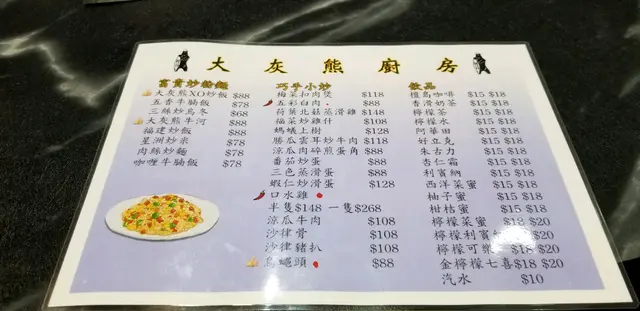 大灰熊廚房
富貴炒粉麵
大灰熊XO炒飯 $88
五香牛腩飯 $78
三絲炒烏冬 $68
大灰熊牛河 $88
福建炒飯 $88
星洲炒米 $78
肉絲炒麵 $78
咖喱牛腩飯 $78
巧手小炒
梅菜扣肉煲 $118
五彩白肉 $88
荷葉北菇蒸滑雞 $148
福菜炒雞什 $108
螞蟻上樹 $128
勝瓜雲耳炒牛肉 $118
涼瓜肉碎煎蛋角 $88
番茄炒蛋 $88
三色蒸滑蛋 $88
蝦仁炒滑蛋 $128
口水雞
半隻$148 一隻$268
涼瓜牛肉 $108
沙律骨 $108
沙律豬扒 $108
烏蠅頭 $88
飲品
檀島咖啡 $15 $18
香滑奶茶 $15 $18
檸檬茶 $15 $18
檸檬水 $15 $18
阿華田 $15 $18
好立克 $15 $18
朱古力 $15 $18
杏仁霜 $15 $18
利賓納 $15 $18
西洋菜蜜 $15 $18
柚子蜜 $15 $18
柑桔蜜 $15 $18
檸檬菜蜜 $18 $20
檸檬利賓納 $18 $20
檸檬可樂 $18 $20
金檸檬七喜$18 $20
汽水 $10